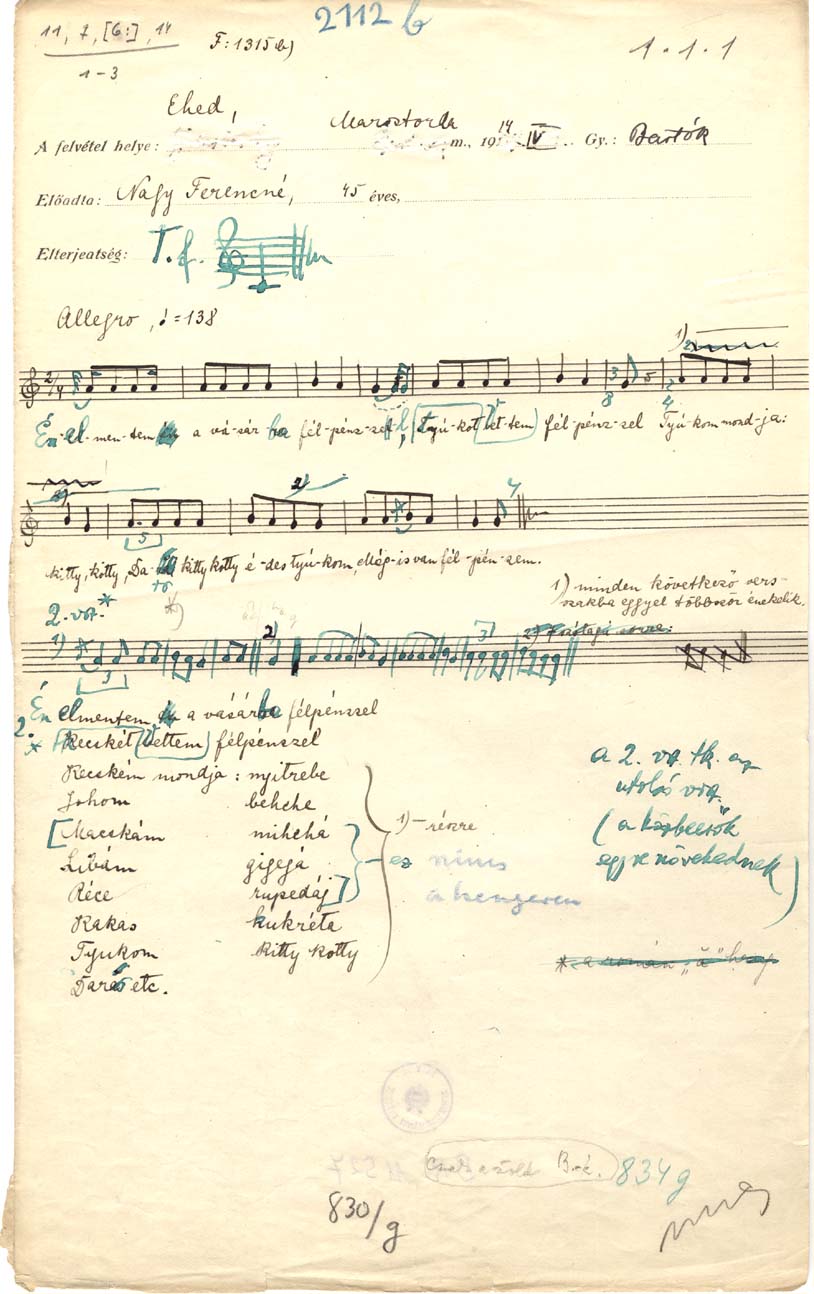 2112 b
11, 7, [6:], 14
1-3
F: 1315 b)
1 . 1 . 1
Ehed, Marostorda 14
A felvétel helye: m., 191 IV. Gy.: Bartók
Előadta: Nagy Ferencné, 45 éves,
Elterjeatség: T. f.
Allegro, ♩ = 138
1)
2/4 3/8 2/4
Én el-men-tem a vá-sár ba fél-pénz-zel, Tyú-kot vet-tem fél-pénz-zel Tyú-kom mond-ja:
2)
kitty, kotty, Da-ró kitty kotty é-des tyú-kom, Még-is van fél-pén-zem.
1) minden következő vers-
szakba eggyel többször énekelik.
2. vsz. *
1) 2) 3)
Én elmentem a vásárba félpénzzel
2. Kecskét vettem félpénzzel
Kecském mondja: nyitrebe
Johom behehe
[Macskám mihehá
Libám gigejá
Réce rupedáj]
Kakas kukréta
Tyukom kitty kotty
Darás etc.
1)-részre
ez nincs
a hengeren
a 2. vsz. tk. az
utolsó vsz.
(a közbeesők
egyre növekednek)
834 g
830/g